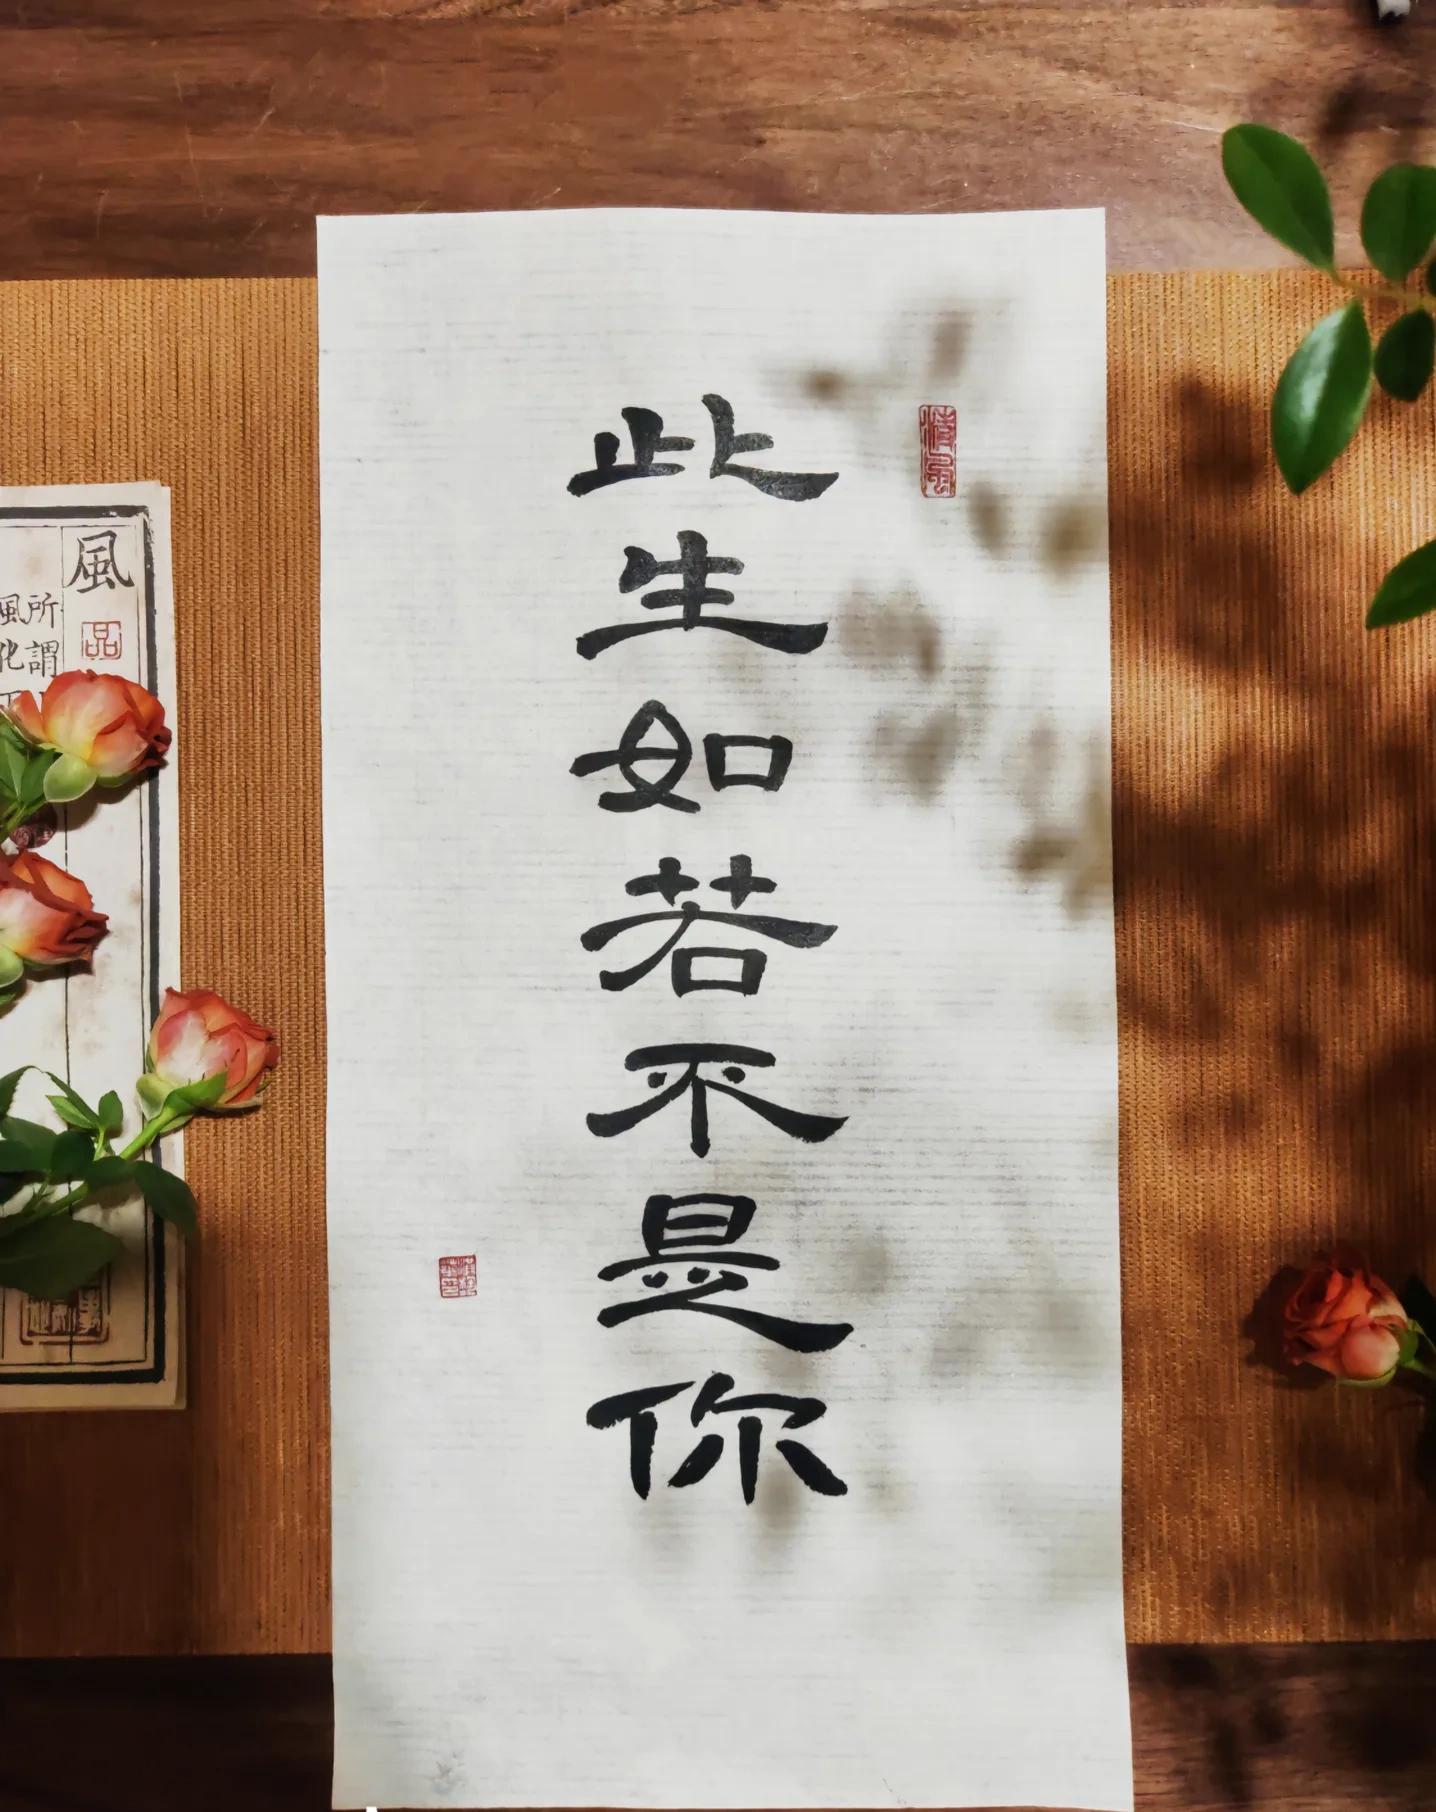 此生如若不是你
清風
風
品
所謂
風化